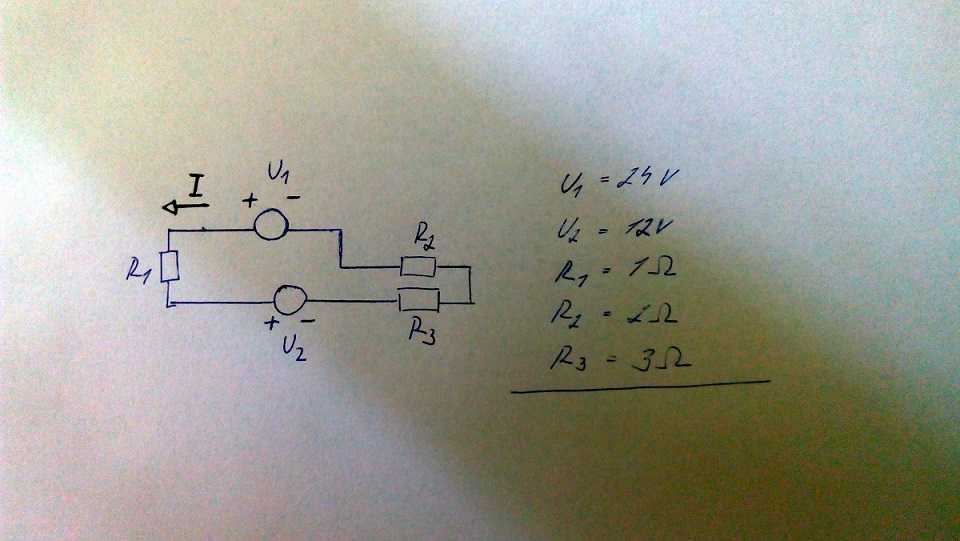 U1
+ -
I
R1
R2
R3
+ -
U2
U1 = 24V
U2 = 12V
R1 = 1Ω
R2 = 2Ω
R3 = 3Ω